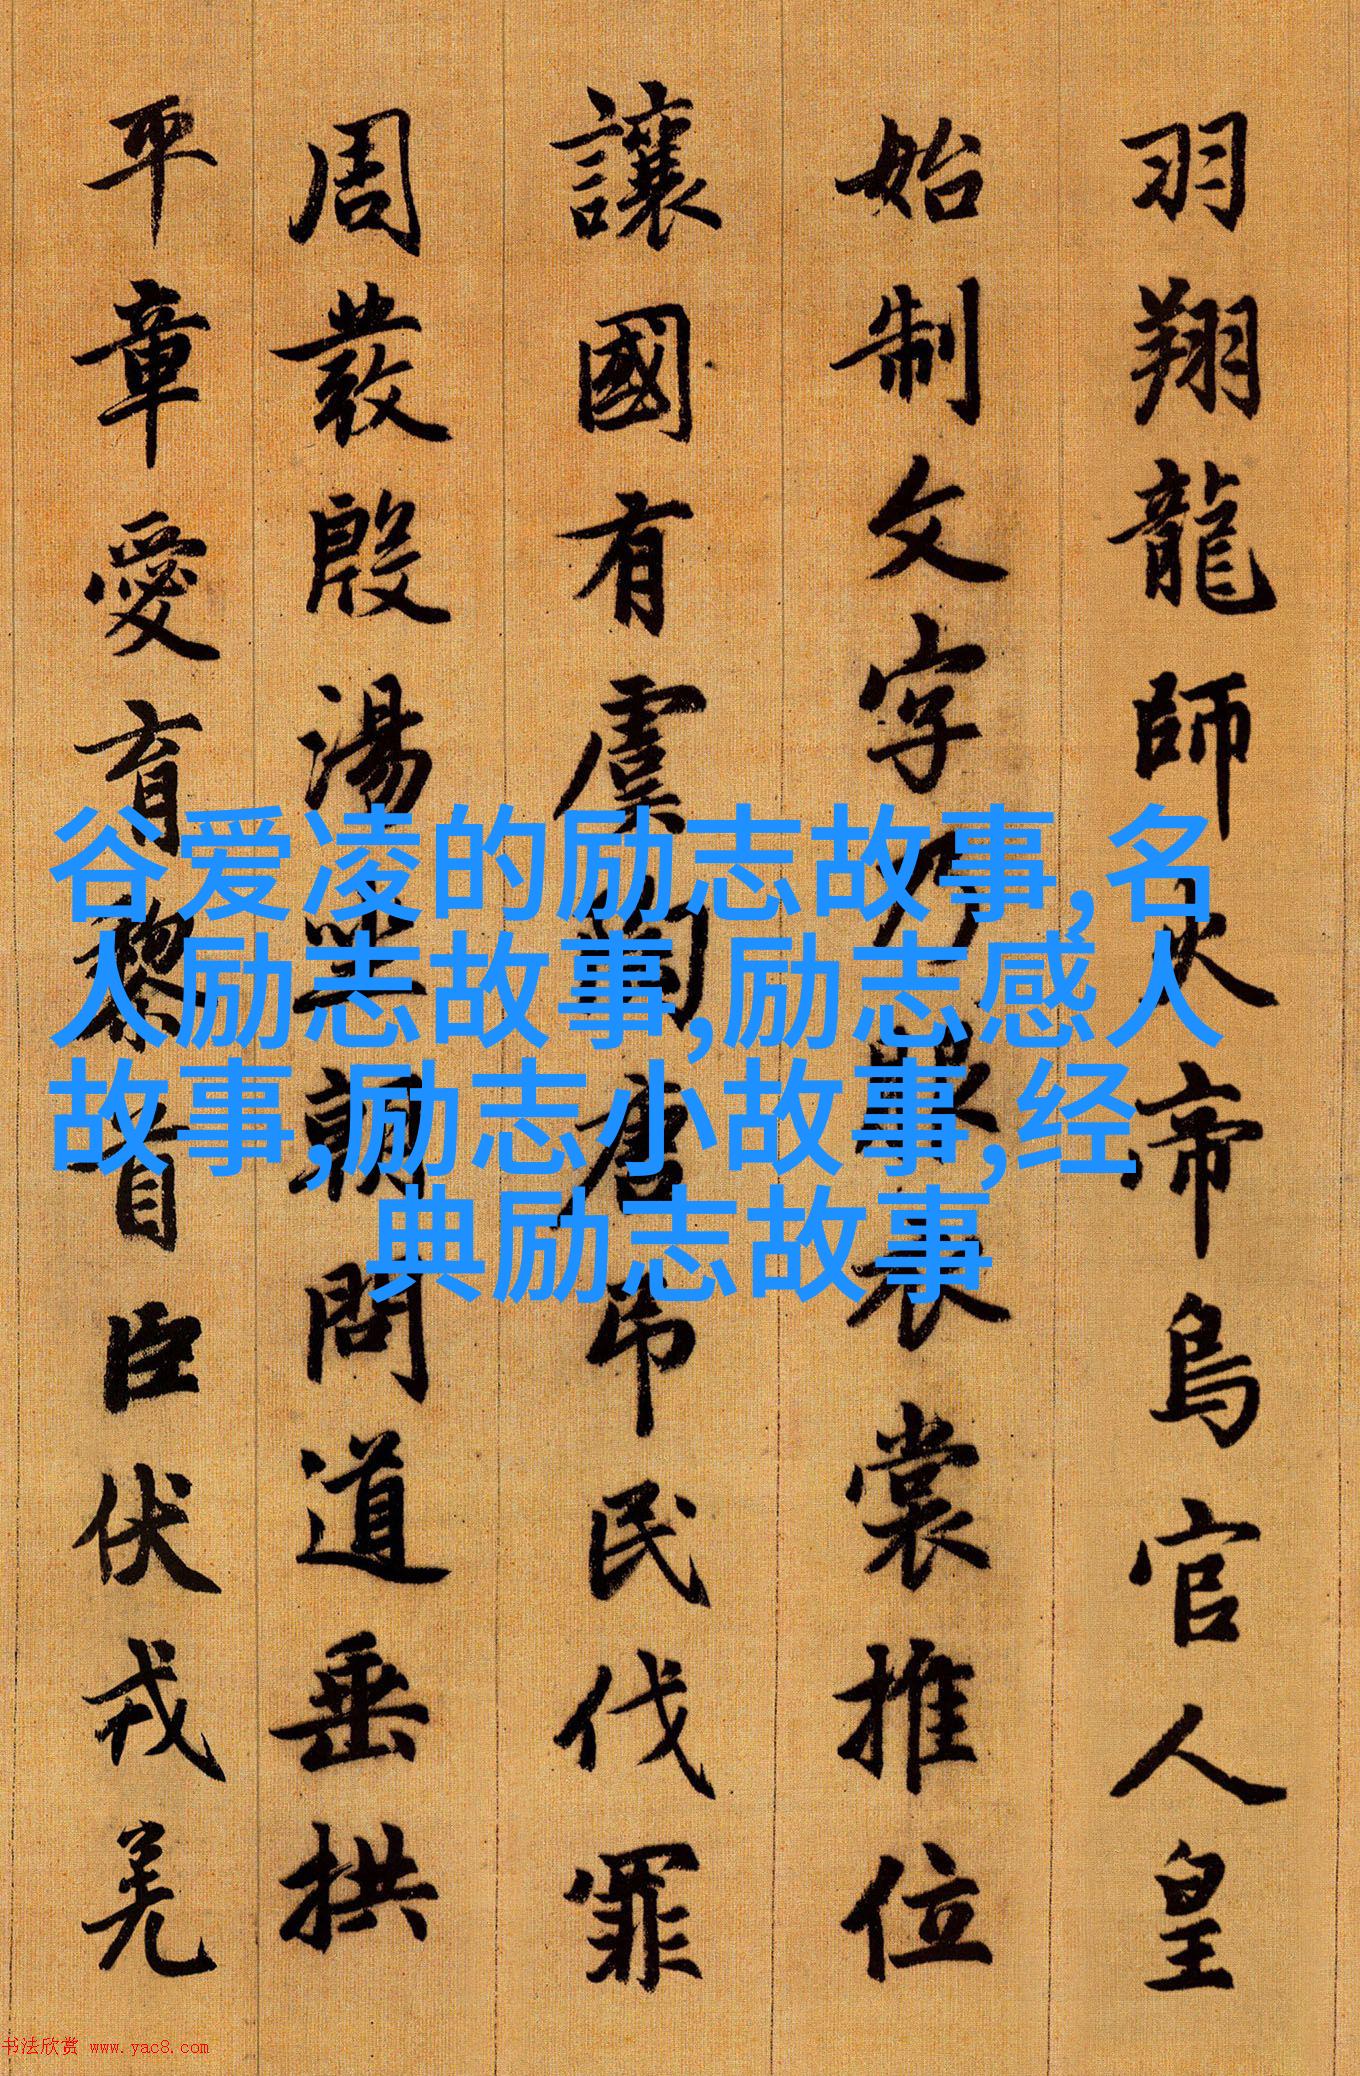 羽翔龍師火帝鳥官人皇
始制文字乃服衣裳推位
讓國有虞陶唐吊民伐罪
周發殷湯坐朝問道垂拱
平章愛育黎首臣伏戎羌
谷爱凌的励志故事,名
人励志故事,励志感人
故事,励志小故事,经
典励志故事
书法欣赏 www.yac8.com